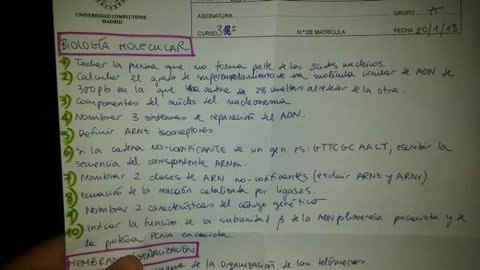 UNIVERSIDAD COMPLUTENSE
MADRID
ASIGNATURA
GRUPO A
CURSO 3º
N.º DE MATRÍCULA
FECHA 20/1/13
BIOLOGÍA MOLECULAR
1) Tachar la purina que no forma parte de los ácidos nucleicos.
2) Calcular el grado de superenrollamiento de una molécula circular de ADN de
300pb en la que una cadena da 28 vueltas alrededor de la otra.
3) Componentes del núcleo del nucleosoma
4) Nombrar 3 sistemas de reparación del ADN.
5) Definir ARNt isoaceptores
6) Si la cadena NO-CODIFICANTE de un gen es: GTTCGCAACT, escribir la
secuencia del correspondiente ARNm.
7) Nombrar 2 clases de ARN no-codificantes (excluir ARNt y ARNr).
8) Ecuación de la reacción catalizada por ligasas.
9) Nombrar 2 características del código genético
10) Indicar la función de la subunidad β de la ADN polimerasa procariota y de
la proteína PCNA eucariota.
MEMBRANA SEÑALIZACIÓN
de la organización de los telómeros.